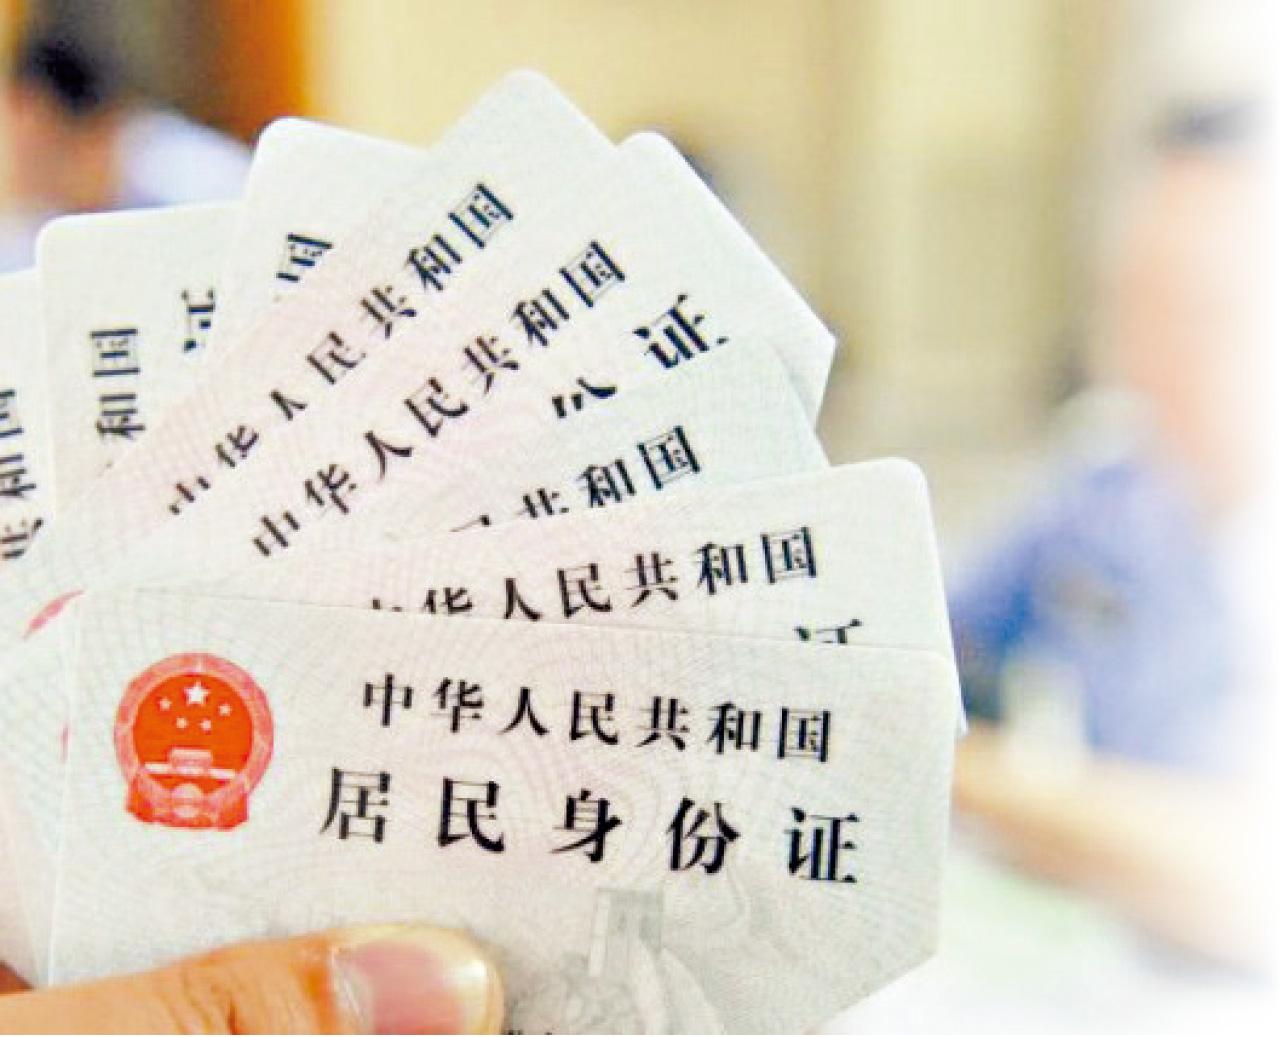 和国
国
中华人民共和国
中华人民共和国
证
共和国
华人民共和国
证
中华人民共和国
居民身份证